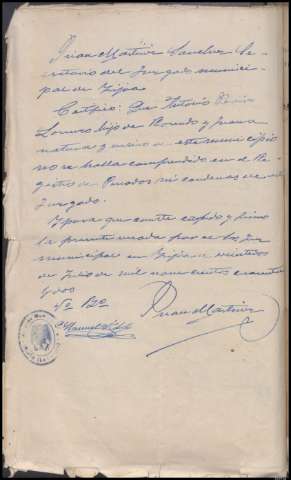 Juan Martinez Sanchez Se-
cretario del Juzgado munici-
pal de
Certifico: Que Antonio
hijo de y Juana
natural y vecino de este municipio
no se halla comprendido en el Re-
gistro de Penados ni condenas de este
Juzgado.
Y para que conste expido y firmo
la presente visada por el Sr. Juez
municipal en a veintidos
de Julio de mil novecientos cuarenta
y dos
Vº Bº
Juan Martinez
Manuel